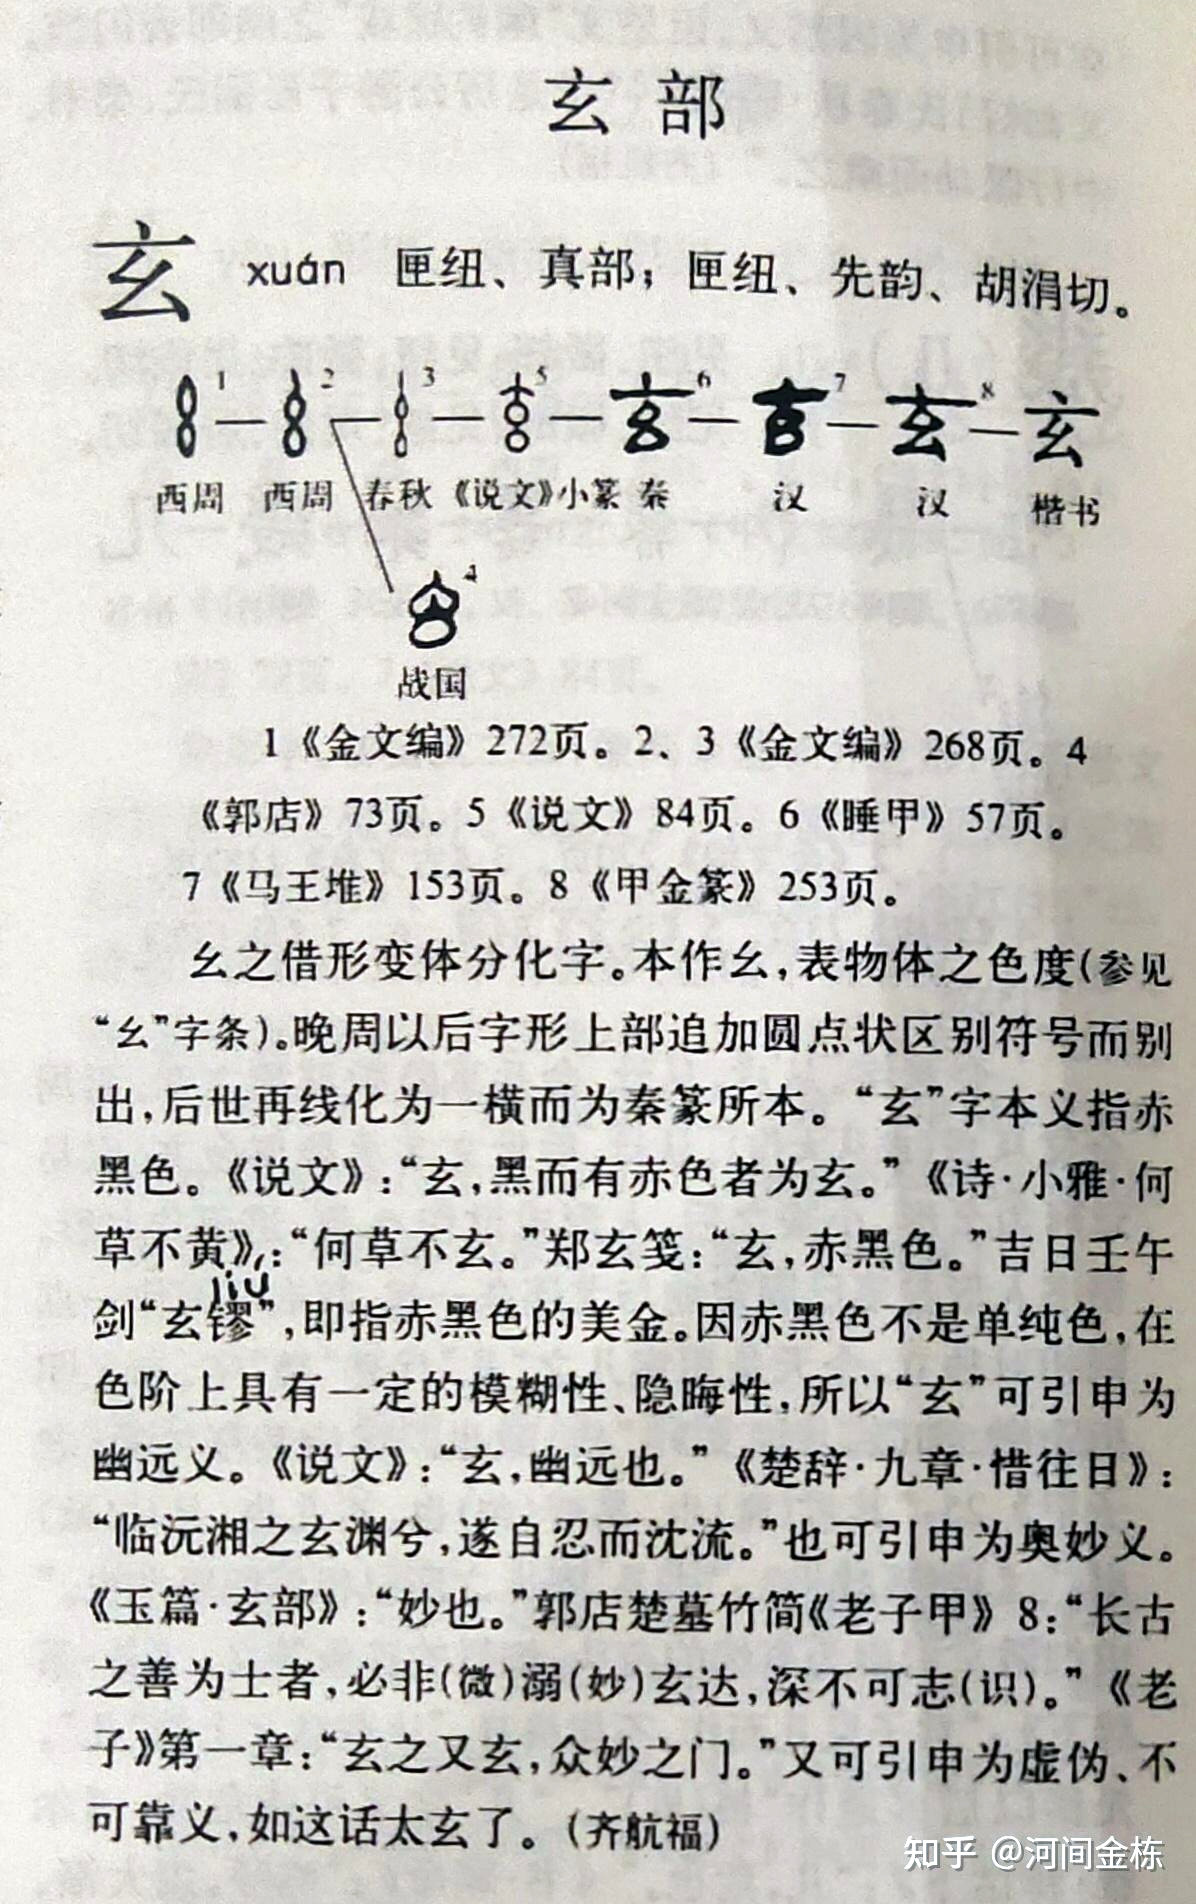 玄部
玄 xuán 匣纽、真部；匣纽、先韵、胡涓切。
1 2 3 5 6 7 8 玄
西周 西周 春秋 《说文》小篆 秦 汉 汉 楷书
4
战国
1《金文编》272页。2、3《金文编》268页。4
《郭店》73页。5《说文》84页。6《睡甲》57页。
7《马王堆》153页。8《甲金篆》253页。
幺之借形变体分化字。本作幺，表物体之色度(参见
“幺”字条)。晚周以后字形上部追加圆点状区别符号而别
出，后世再线化为一横而为秦篆所本。“玄”字本义指赤
黑色。《说文》：“玄，黑而有赤色者为玄。”《诗·小雅·何
草不黄》：“何草不玄。”郑玄笺：“玄，赤黑色。”吉日壬午
liú
剑“玄镠”，即指赤黑色的美金。因赤黑色不是单纯色，在
色阶上具有一定的模糊性、隐晦性，所以“玄”可引申为
幽远义。《说文》：“玄，幽远也。”《楚辞·九章·惜往日》：
“临沅湘之玄渊兮，遂自忍而沈流。”也可引申为奥妙义。
《玉篇·玄部》：“妙也。”郭店楚墓竹简《老子甲》8：“长古
之善为士者，必非(微)溺(妙)玄达，深不可志(识)。”《老
子》第一章：“玄之又玄，众妙之门。”又可引申为虚伪、不
可靠义，如这话太玄了。(齐航福)
知乎 @河间金栋